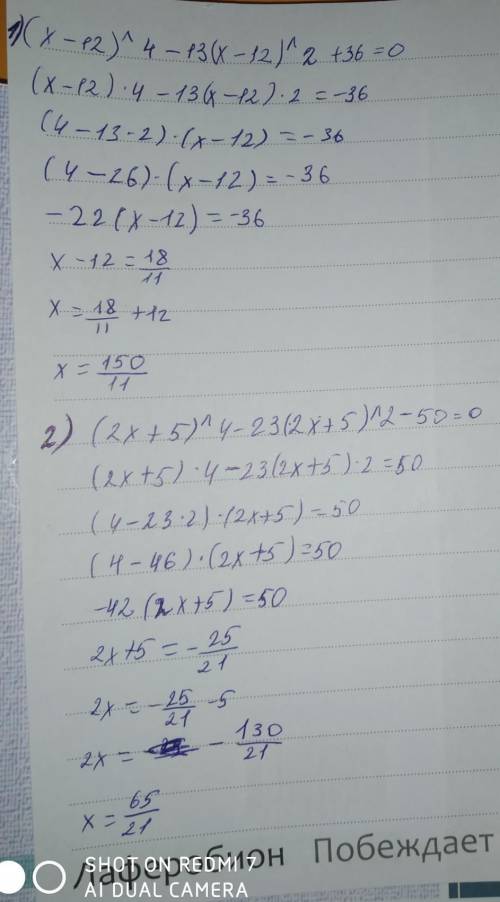 1) (x-12)^4-13(x-12)^2+36=0
(x-12)·4-13(x-12)·2=-36
(4-13·2)·(x-12)=-36
(4-26)·(x-12)=-36
-22(x-12)=-36
x-12=18/11
x=18/11+12
x=150/11
2) (2x+5)^4-23(2x+5)^2-50=0
(2x+5)·4-23(2x+5)·2=50
(4-23·2)·(2x+5)=50
(4-46)·(2x+5)=50
-42(2x+5)=50
2x+5=-25/21
2x=-25/21-5
2x=-130/21
x=65/21
Лаферобион Побеждает
SHOT ON REDMI 7
AI DUAL CAMERA